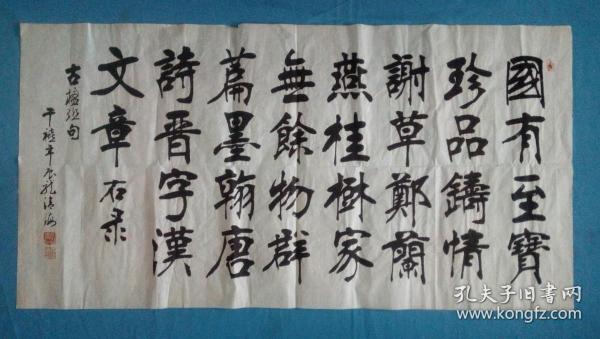 國有至寶
珍品鑄情
謝草鄭蘭
燕桂樹家
無餘物群
篇墨翰唐
詩晉字漢
文章右录
古楹联句
孔夫子旧书网
www.kongfz.com